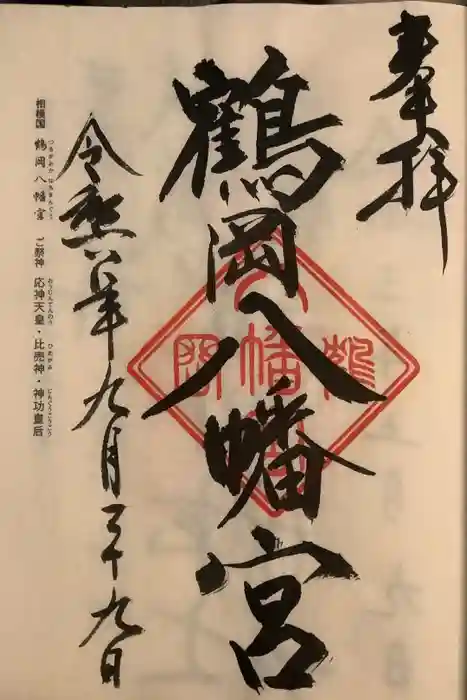 奉拝
鶴岡八幡宮
鶴岡八幡宮
令和年九月二十九日
相模国 鶴岡八幡宮 ご祭神 応神天皇・比売神・神功皇后
つるがおか はちまんぐう おうじんてんのう ひめがみ じんぐうこうごう